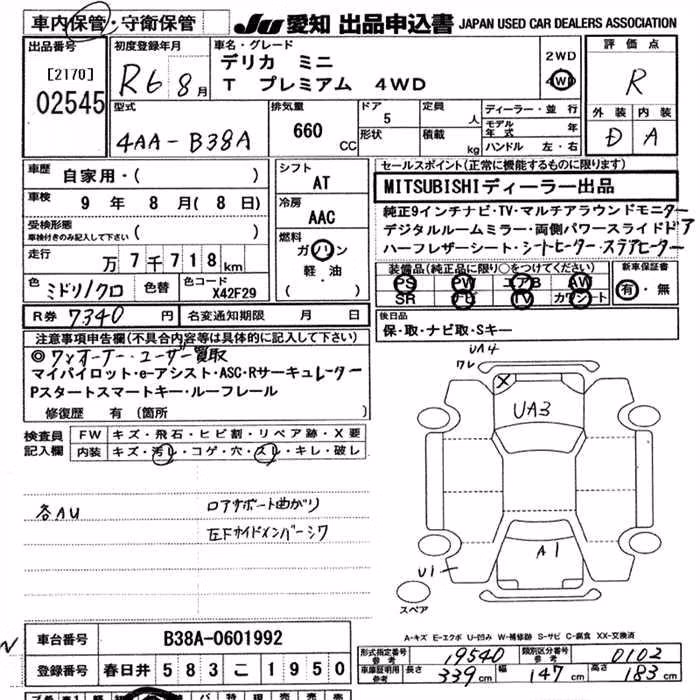 車内保管・守衛保管
JU 愛知 出品申込書 JAPAN USED CAR DEALERS ASSOCIATION
出品番号
[2170]
02545
初度登録年月
R6 8月
車名・グレード
デリカ ミニ
T プレミアム 4WD
2WD
4WD
評価点
R
外装 内装
D A
型式
4AA-B38A
排気量
660 CC
ドア 5
形状
定員 人
積載 kg
ディーラー・並行
モデル年式 年
ハンドル 左・右
車歴 自家用・( )
車検 9年 8月(8日)
受検形態
車検付きのみ記入して下さい ( )
走行 万7千718km
色 ミドリ/クロ 色替 色コード X42F29
シフト AT
冷房 AAC
燃料
ガソリン
軽・油
( )
R券 7340円 名変通知期限 月 日
セールスポイント(正常に機能するものに限ります)
MITSUBISHIディーラー出品
純正9インチナビ・TV・マルチアラウンドモニター
デジタルルームミラー・両側パワースライドドア
ハーフレザーシート・シートヒーター・ステアヒーター
装備品(純正品に限り○をつけてください)
PS PW エアB AW
SR ナビ TV カワシート
新車保証書
有・無
後日品
保・取・ナビ取・Sキー
注意事項申告欄(不具合内容等は具体的に記入して下さい)
◎ワンオーナー・ユーザー買取
マイパイロット・e-アシスト・ASC・Rサーキュレーター
Pスタートスマートキー・ルーフレール
修復歴 有(箇所 )
検査員記入欄
FW キズ・飛石・ヒビ割・リペア跡・X要
内装 キズ・汚レ・コゲ・穴・スレ・キレ・破レ
各AU
ロアサポート曲がり
左Fサイドメンバーシワ
UA4
ワレ
X
UA3
A1
U1
スペア
A-キズ E-エクボ U-凹み W-補修跡 S-サビ C-腐食 XX-交換済
車台番号 B38A-0601992
登録番号 春日井 583 こ 1950
形式指定番号 参考 19540 類別区分番号 参考 0102
車庫証明用 参考 長さ 339cm 幅 147cm 高さ 183cm